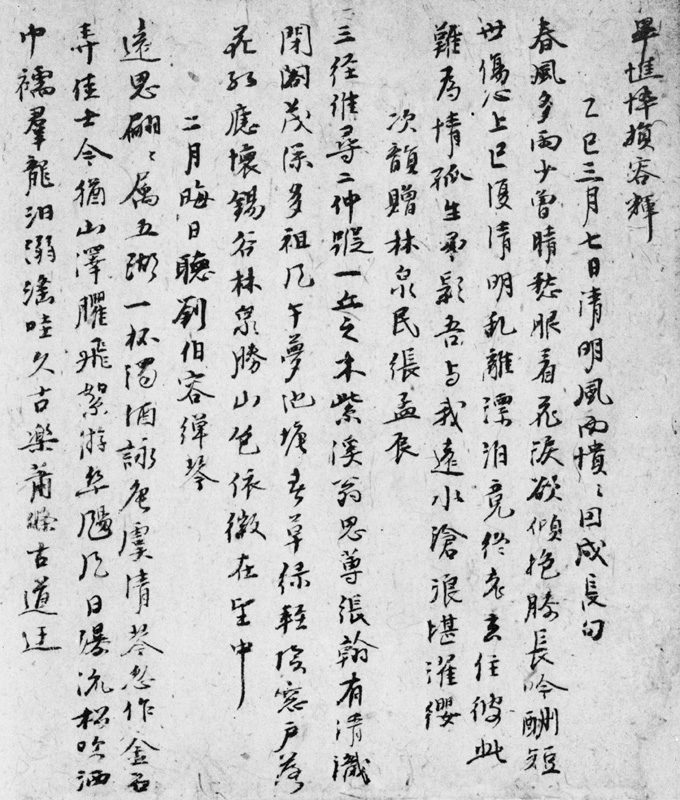 畢憔悴損容輝
乙巳三月七日清明風雨憒〻因成長句
春風多雨少曾晴愁眼看花淚欲傾抱膝長吟酬短
世傷心上巳復清明亂離漂泊竟終老去住彼此
難為情孤生弔影吾與我遠水滄浪堪濯纓
次韻贈林泉民張孟辰
三径往尋二仲蹤一丘之木紫溪翁思蓴張翰有清識
閉閣茂深多祖風午夢池塘春草綠輕陰窗戶落
花紅應懷錫谷林泉勝山色依微在望中
二月晦日聽劉伯容彈琴
遠思翩〻属五湖一杯濁酒詠唐虞清琴忽作金石
弄佳士今猶山澤臞飛絮游絲隨風日瀑流松吹洒
巾襦羣龍汩溺淫哇久古樂蕭條古道迂